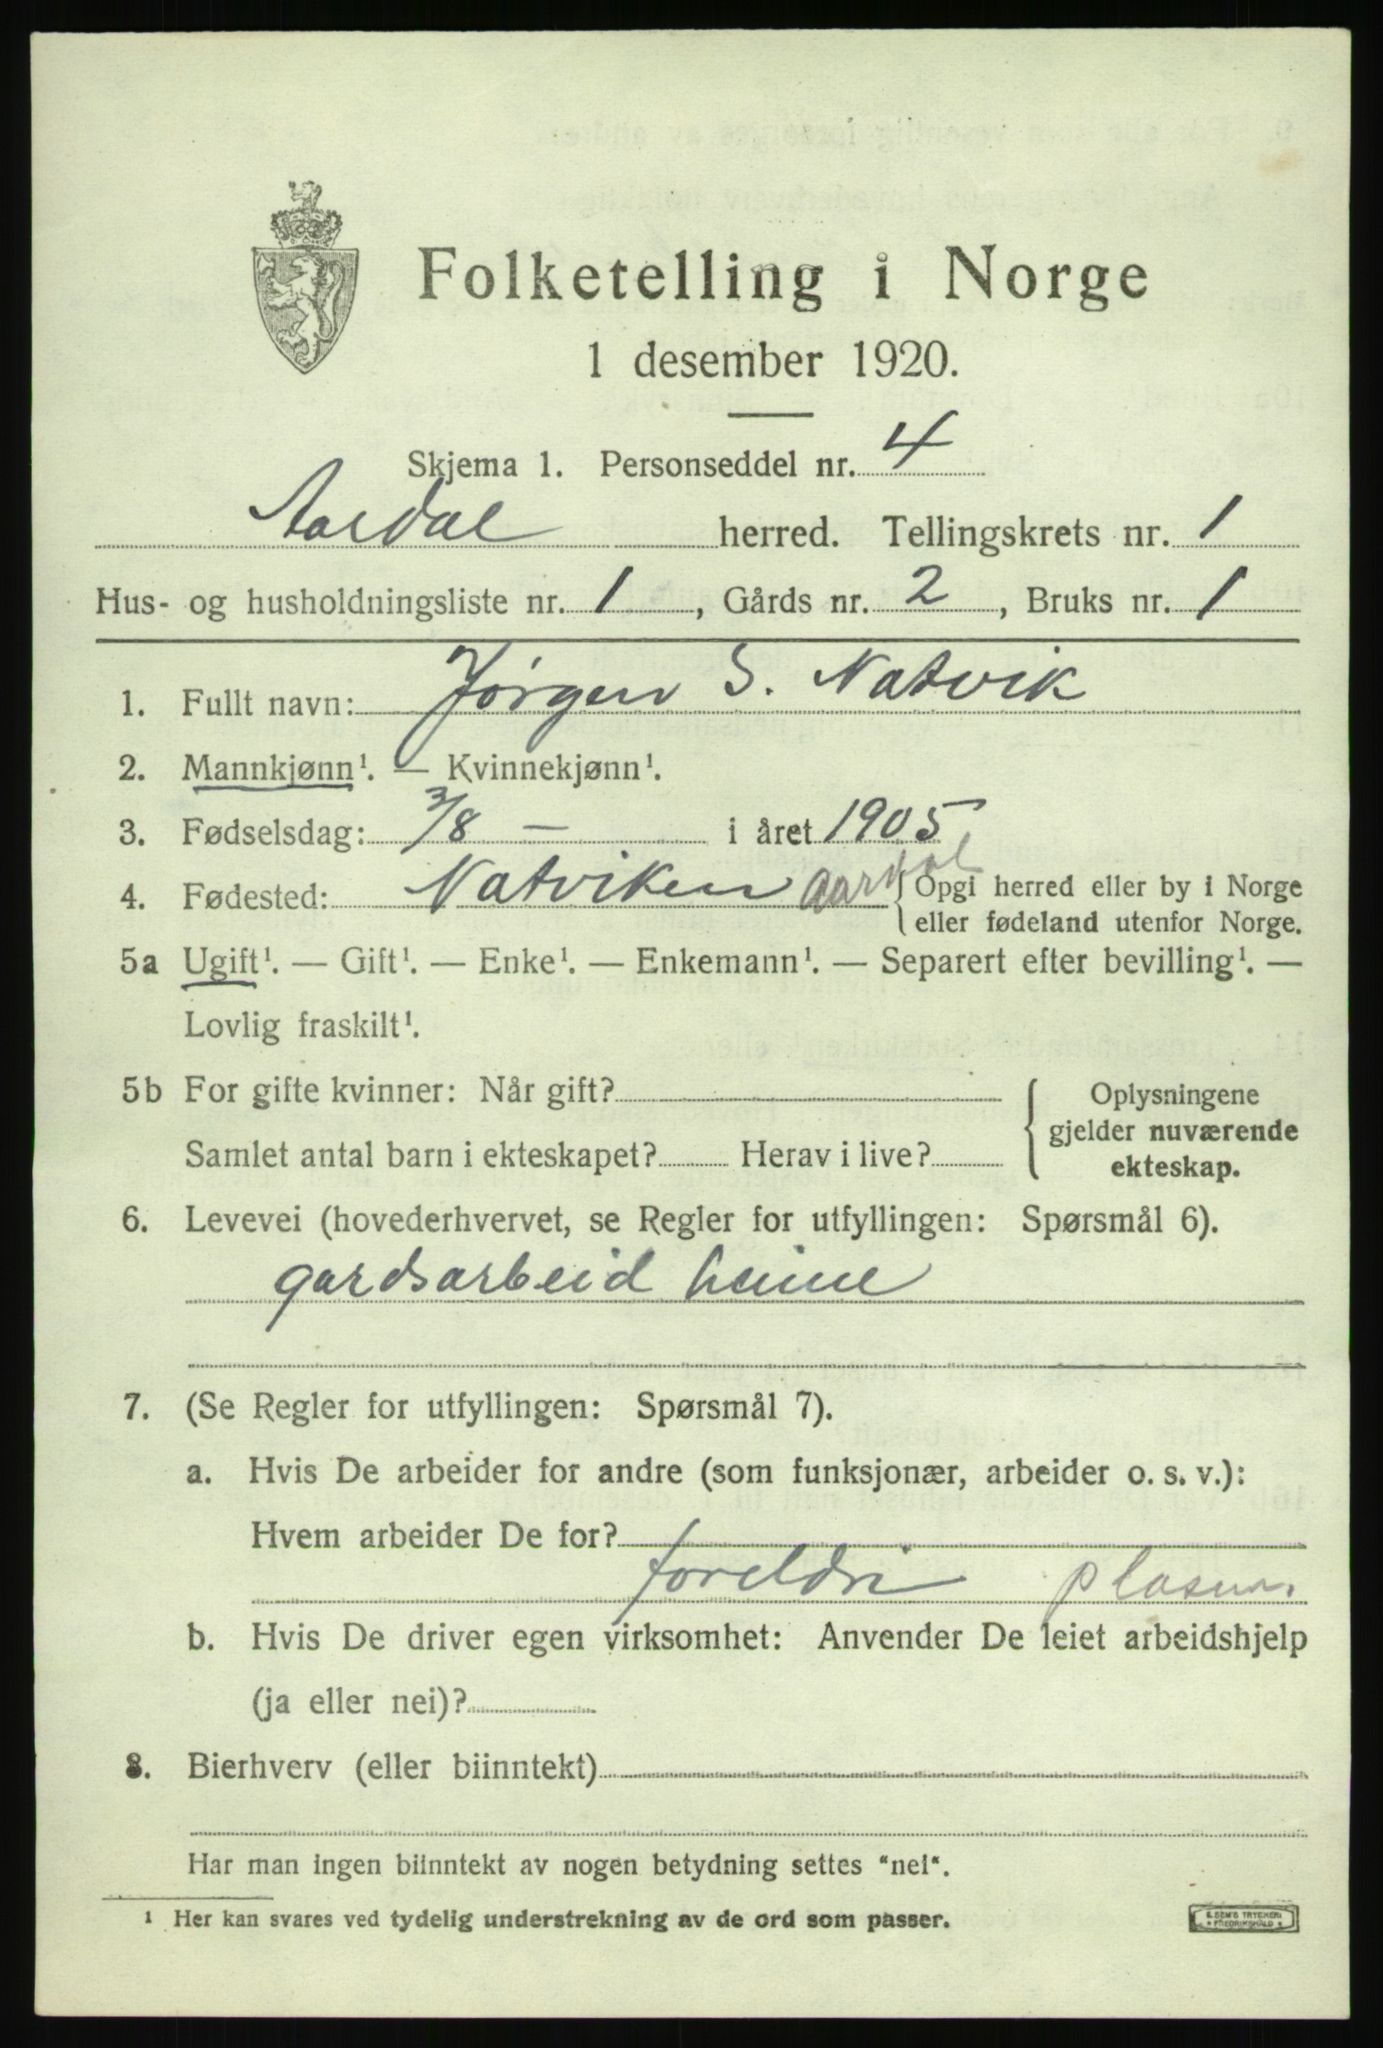 Folketelling i Norge
1 desember 1920.
Skjema 1. Personseddel nr. 4
Aardal herred. Tellingskrets nr. 1
Hus- og husholdningsliste nr. 1, Gårds nr. 2, Bruks nr. 1
1. Fullt navn: Jørgen S. Natvik
2. Mannkjønn¹. — Kvinnekjønn¹.
3. Fødselsdag: 3/8 — i året 1905
4. Fødested: Natviken Aardal { Opgi herred eller by i Norge
eller fødeland utenfor Norge.
5a Ugift¹. — Gift¹. — Enke¹. — Enkemann¹. — Separert efter bevilling¹. —
Lovlig fraskilt¹.
5b For gifte kvinner: Når gift? { Oplysningene
gjelder nuværende
Samlet antal barn i ekteskapet? Herav i live? ekteskap.
6. Levevei (hovederhvervet, se Regler for utfyllingen: Spørsmål 6).
gardsarbeid heime
7. (Se Regler for utfyllingen: Spørsmål 7).
a. Hvis De arbeider for andre (som funksjonær, arbeider o. s. v.):
Hvem arbeider De for?
foreldri
b. Hvis De driver egen virksomhet: Anvender De leiet arbeidshjelp
(ja eller nei)?
8. Bierhverv (eller biinntekt)
Har man ingen biinntekt av nogen betydning settes "nei".
¹ Her kan svares ved tydelig understrekning av de ord som passer.